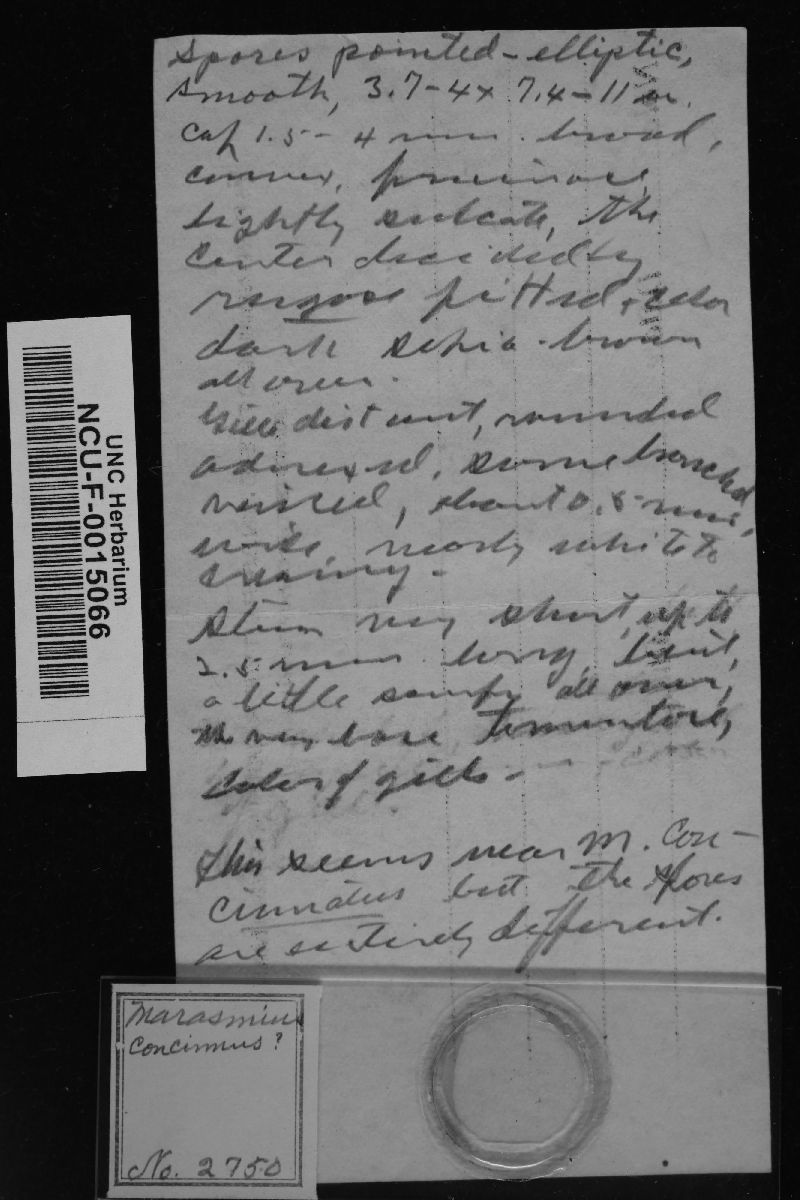 spores pointed-elliptic,
smooth, 3.7-4x 7.4-11 m.
Cap 1.5 - 4 mm. broad,
convex, pruinose,
lightly sulcate, the
center decidedly
rugose pitted, color
dark sepia-brown
all over.
Gills distant, rounded
adnexed, some branched
veined, about 0.5 mm,
wide, nearly white to
creamy.
Stem very short, up to
2.5 mm long, bent,
a little scurfy all over,
the very base tomentose,
color of gills.
This seems near M. Con-
cinnatus but the spores
are entirely different.
UNC Herbarium
NCU-F-0015066
Marasmius
concinnus?
No. 2750